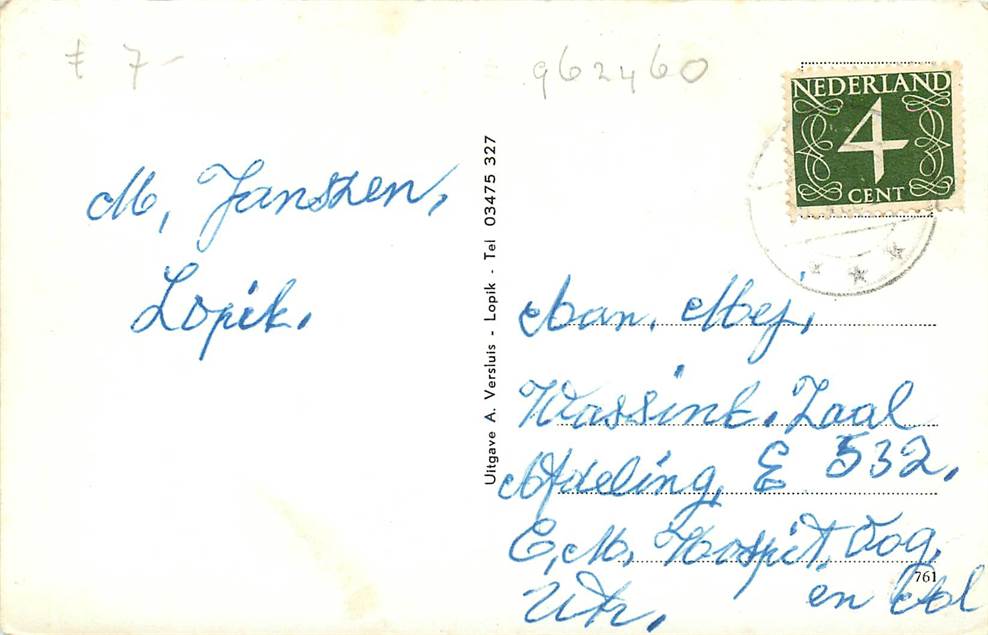 ₤ 7-
962460
NEDERLAND
4
CENT
M, Janszen,
Lopik.
Uitgave A. Versluis - Lopik - Tel 03475 327
Aan. Mej,
Wassink. Zaal
Afdeling, E 532.
E, M, Hospit, Oog,
761
Utr. en Ad